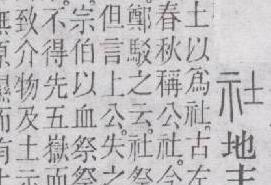 社地主
土以爲社。古左
春秋稱公社。今
鄭駁之云。社祭
但言上公。失之
宗伯以血祭祭
不得先五嶽而
致介物及土示
原隰而有